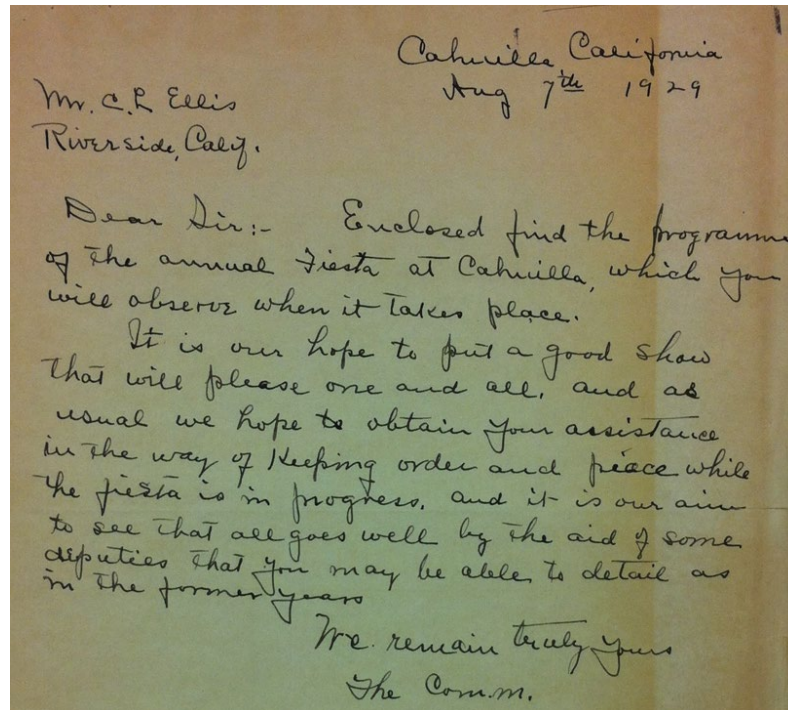 Cahuilla, California
Aug 7th 1929
Mr. C. L Ellis
Riverside, Calif.
Dear Sir:- Enclosed find the programme
of the annual Fiesta at Cahuilla, which you
will observe when it takes place.
It is our hope to put a good show
that will please one and all, and as
usual we hope to obtain your assistance
in the way of keeping order and peace while
the fiesta is in progress, and it is our aim
to see that all goes well by the aid of some
deputies that you may be able to detail as
in the former years
We remain truly yours
The Comm.